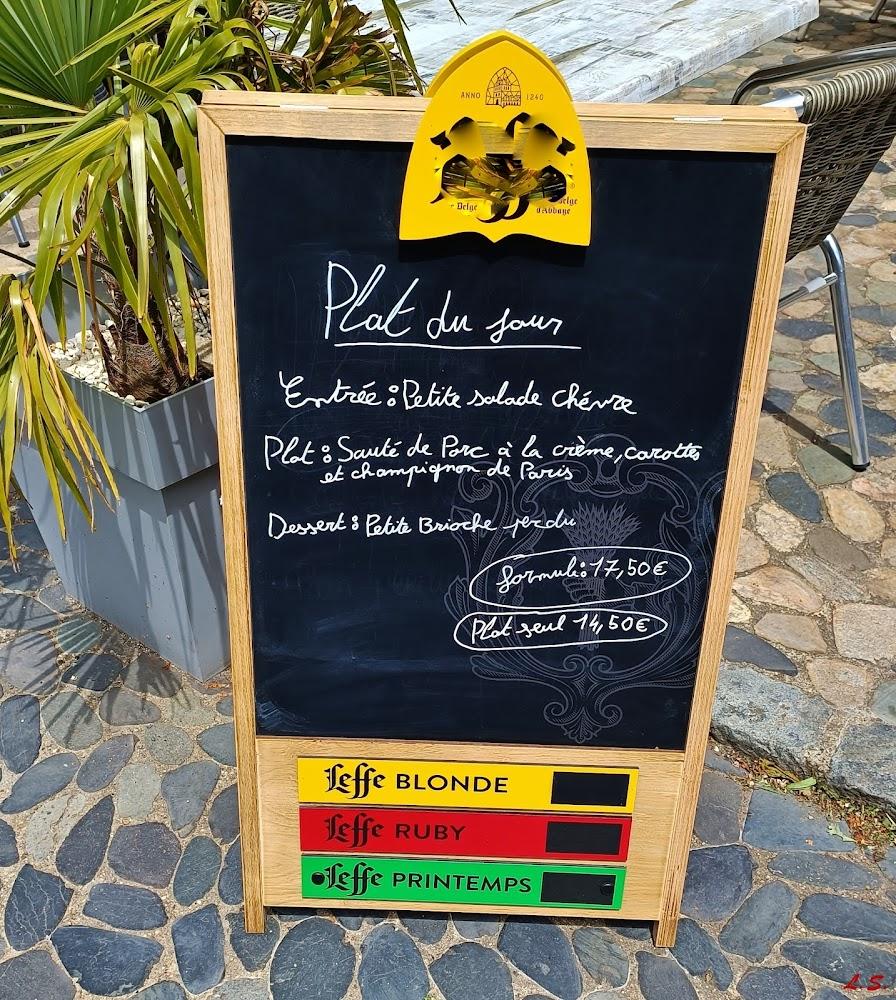 ANNO 1240
Belge
d'Abbaye
Plat du jour
Entrée : Petite salade chévre
Plat : Sauté de Porc à la crème, carottes
et champignon de Paris
Dessert : Petite Brioche perdu
formule : 17,50€
Plat seul 14,50€
Leffe BLONDE
Leffe RUBY
Leffe PRINTEMPS
L S